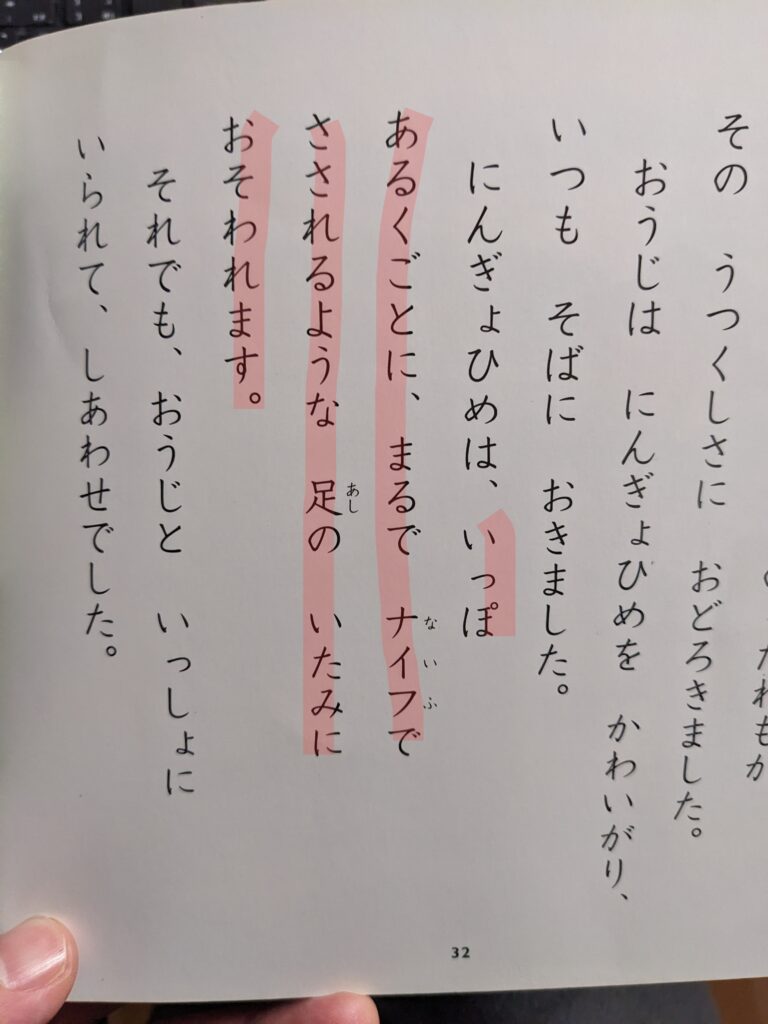 その　うつくしさに　おどろきました。
おうじは　にんぎょひめを　かわいがり、
いつも　そばに　おきました。
にんぎょひめは、いっぽ
あるくごとに、まるで　ナイフで
ないふ
さされるような　足の　いたみに
あし
おそわれます。
それでも、おうじと　いっしょに
いられて、しあわせでした。
32